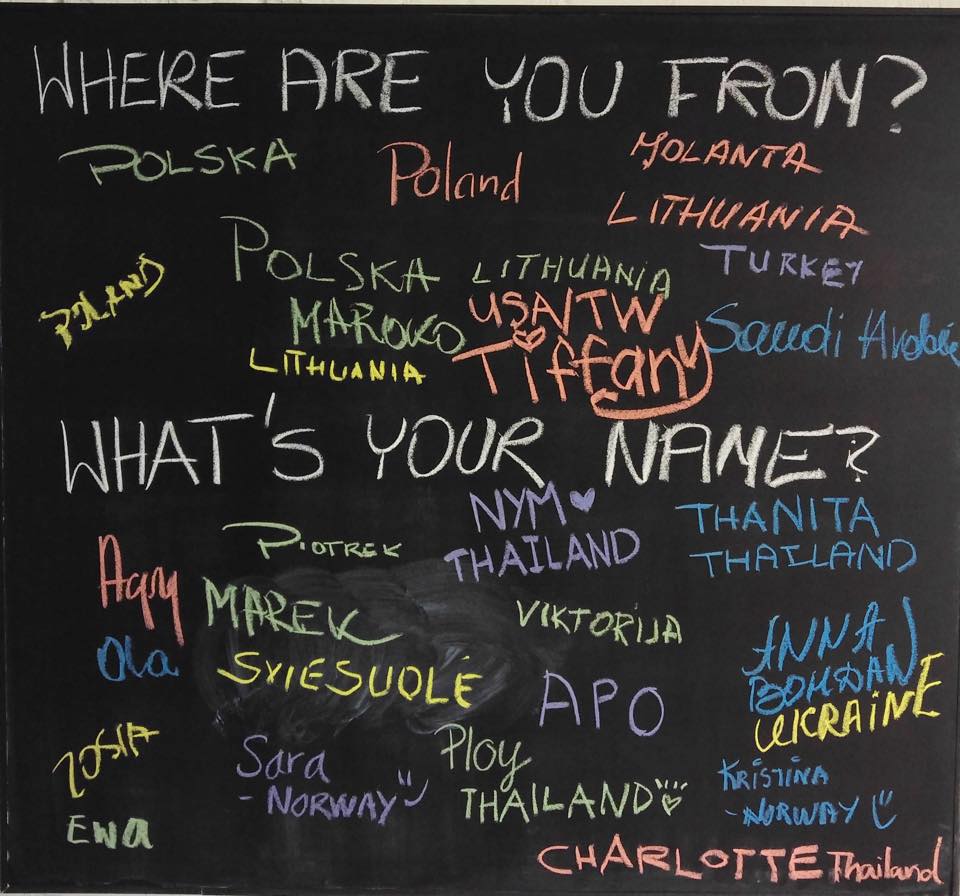 WHERE ARE YOU FROM?
POLSKA
Poland
JOLANTA
LITHUANIA
POLSKA
LITHUANIA
TURKEY
POLAND
MAROKO
USA/TW
Tiffany
Saudi Arabia
LITHUANIA
WHAT'S YOUR NAME?
NYM
THAILAND
THANITA
THAILAND
PIOTREK
MAREK
VIKTORIJA
ANNA
BOHDAN
UKRAINE
Ola
SVIESUOLĖ
APO
ZOSIA
Sara
- NORWAY
Ploy
THAILAND
KRISTINA
-NORWAY
EWA
CHARLOTTE Thailand